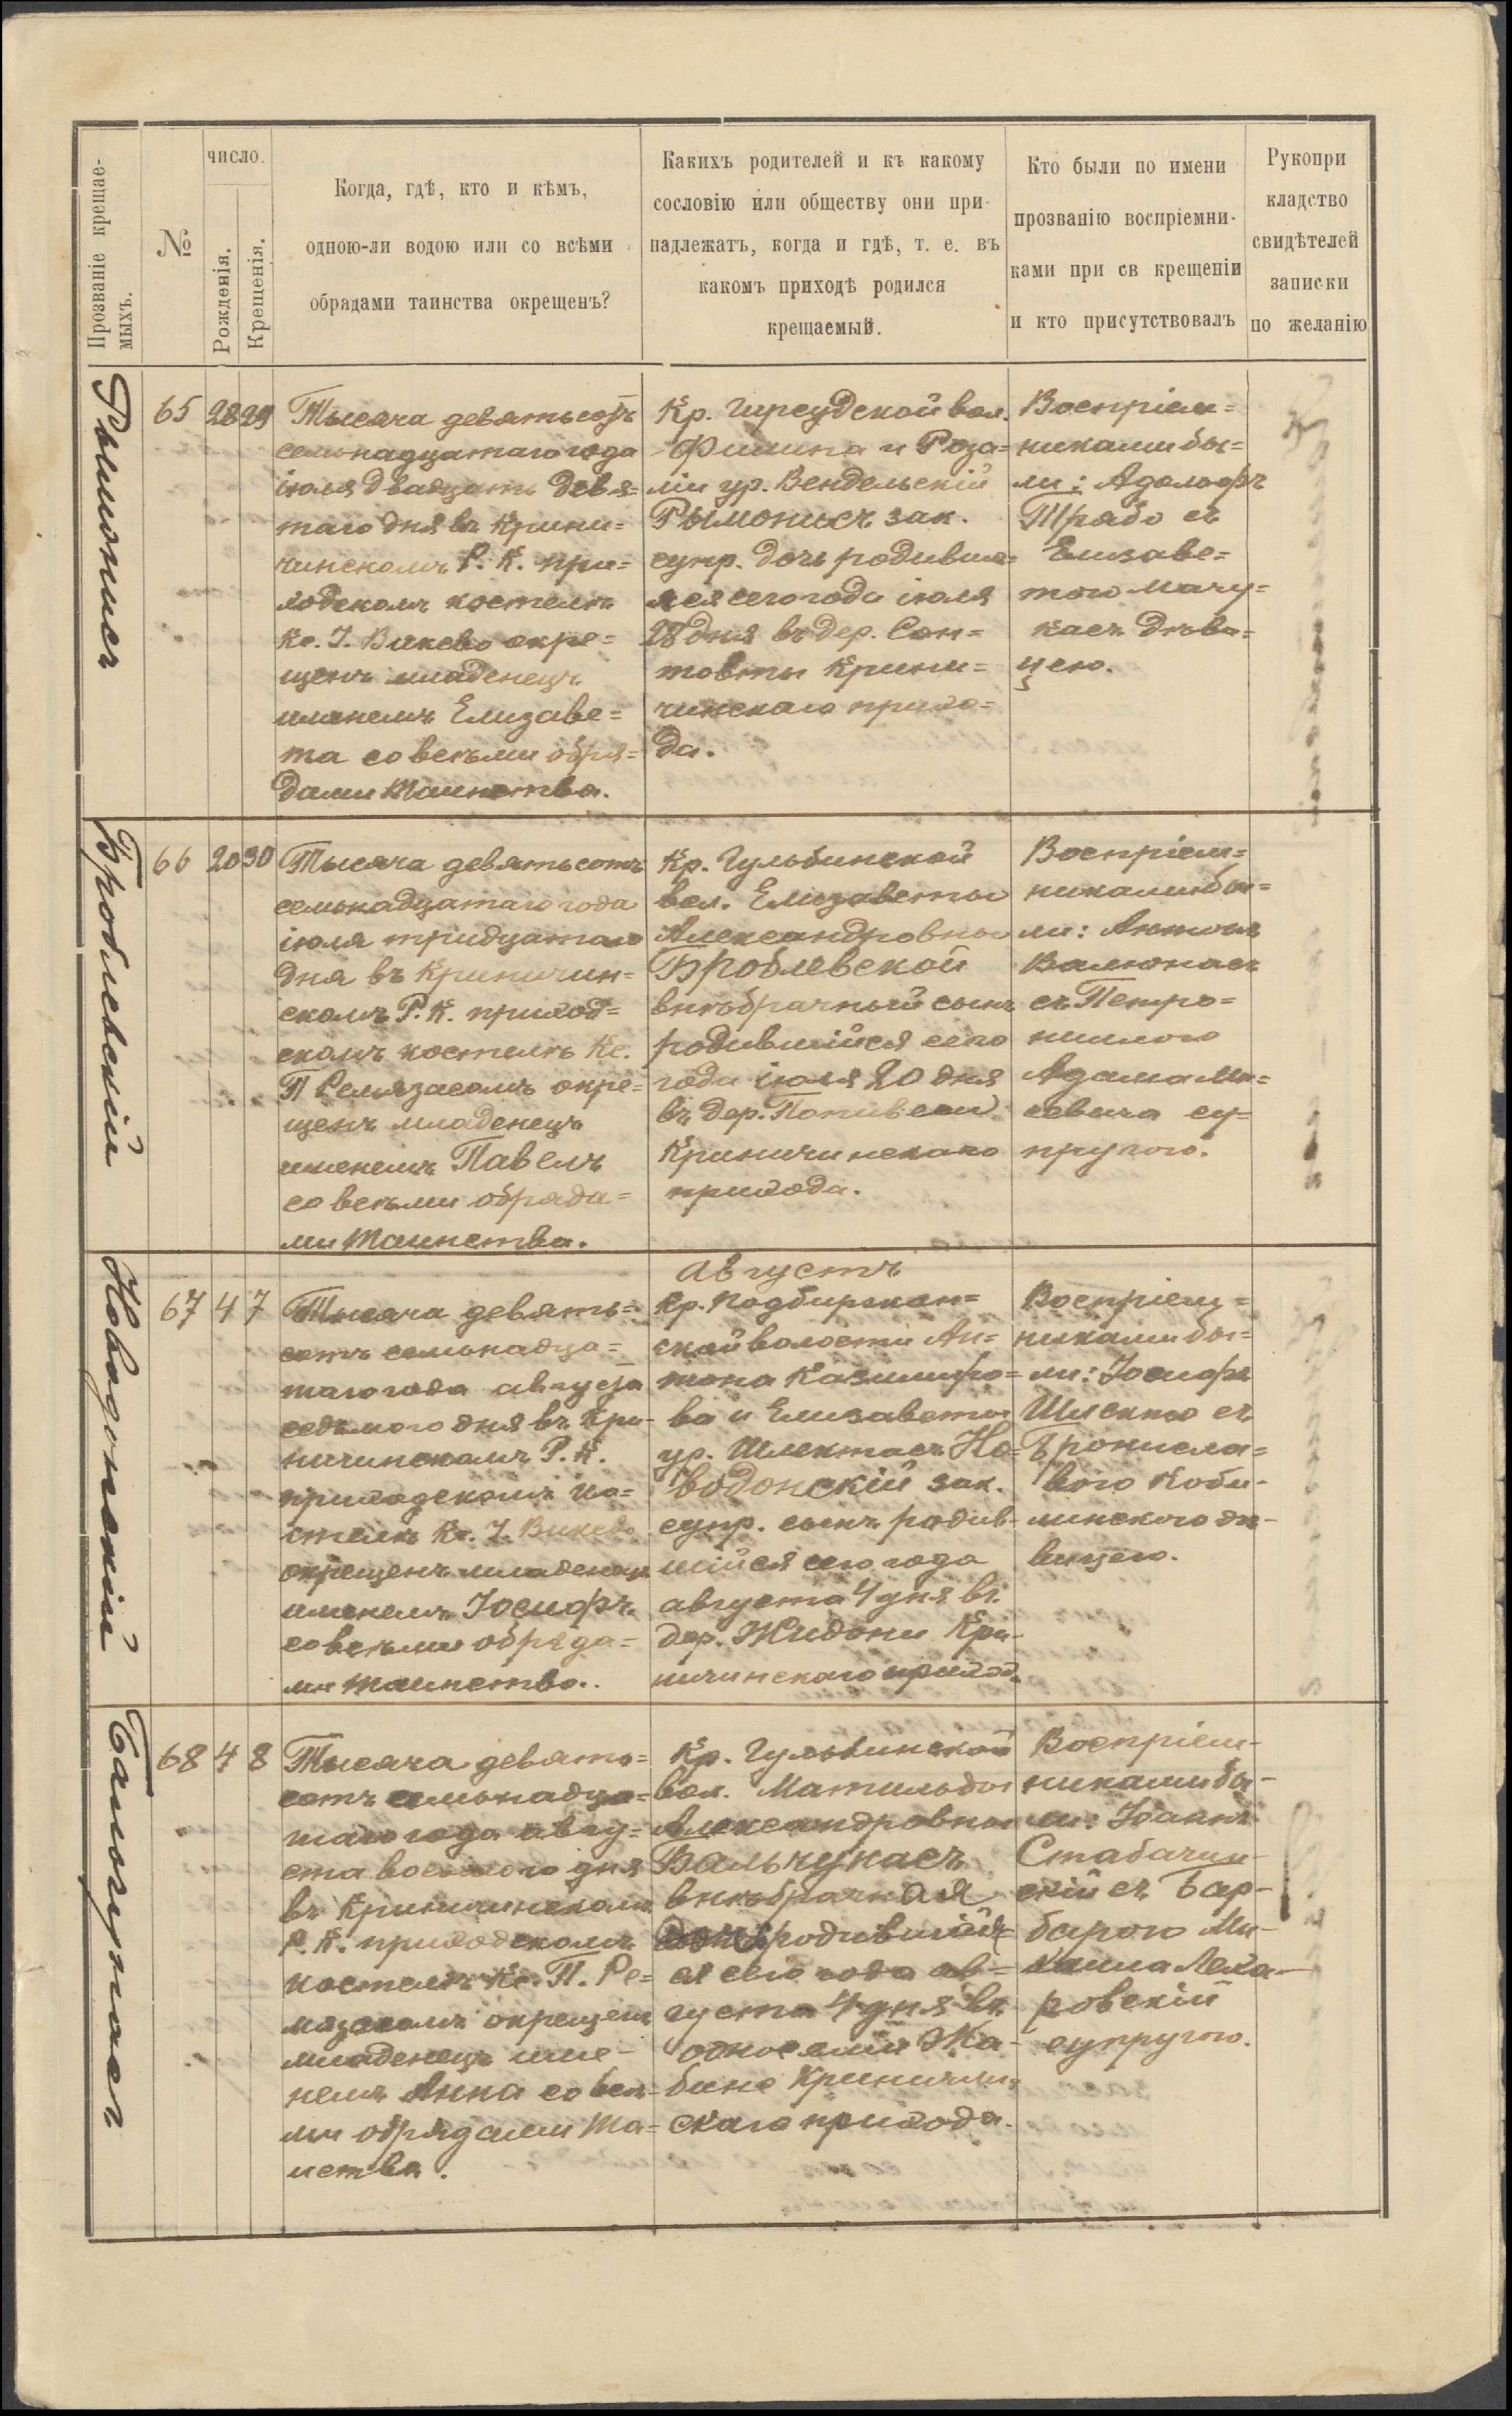 Прозваніе крещае-
мыхъ.
№
число.
Рожденія.
Крещенія.
Когда, гдѣ, кто и кѣмъ,
одною-ли водою или со всѣми
обрядами таинства окрещенъ?
Какихъ родителей и къ какому
сословію или обществу они при-
надлежатъ, когда и гдѣ, т. е. въ
какомъ приходѣ родился
крещаемый.
Кто были по имени
прозванію воспріемни-
ками при св крещеніи
и кто присутствовалъ
Рукопри
кладство
свидѣтелей
записки
по желанію
Рымонисъ
65
28
29
Тысяча девятьсотъ
семьнадцатаго года
іюля двадцать девя=
таго дня въ Крини=
чинскомъ Р. К. при=
ходскомъ костелѣ
Кс. І. Викево окре=
щенъ младенецъ
именемъ Елизаве=
та со всѣми обря=
дами Таинства.
Кр. Гирсудской вол.
Филипа и Роза=
ліи ур. Вендельскій
Рымонисъ зак.
супр. дочь родивша=
яся сего года іюля
28 дня въ дер. Сон=
товты Крини=
чинскаго прихо=
да.
Воспріем=
никами бы=
ли: Адольфъ
Трабо съ
Елизаве=
тою Мачу=
касъ дѣви=
цею.
Броблевскій
66
20
30
Тысяча девятьсотъ
семьнадцатаго года
іюля тридцатаго
дня въ Криничин=
скомъ Р. К. приход=
скомъ костелѣ Кс.
П Ремязасомъ окре=
щенъ младенецъ
именемъ Павелъ
со всѣми обряда=
ми Таинства.
Кр. Гульбинской
вол. Елизаветы
Александровны
Броблевской
внѣбрачный сынъ
родившійся сего
года іюля 20 дня
въ дер.
Криничинскаго
прихода.
Воспріем=
никами бы=
ли: Антонъ
Валюнасъ
съ Петро=
нилою
Адама Ми=
севича су=
пругою.
Новодонскій
67
4
7
Тысяча девять=
сотъ семьнадца=
таго года августа
седьмого дня въ Кри-
ничинскомъ Р. К.
приходскомъ ко=
стелѣ Кс. І. Викево
окрещенъ младенецъ
именемъ Іосифъ
со всѣми обряда=
ми таинства.
Августъ
Кр. Подбиржан=
ской волости Ан=
тона Казимиро=
ва и Елизаветы
ур. Шлектасъ Но=
водонскій зак.
супр. сынъ родив-
шійся сего года
августа 4 дня въ
дер. Жидони Кри-
ничинскаго приход.
Воспріем=
никами бы=
ли: Іосифъ
Шискно съ
Бронисла=
вою Коби-
линскою дѣ-
вицею.
Бальчунасъ
68
4
8
Тысяча девять=
сотъ семьнадца=
таго года авгу=
ста восьмого дня
въ Криничинскомъ
Р. К. приходскомъ
костелѣ Кс. П. Ре=
мязасомъ окрещенъ
младенецъ име-
немъ Анна со всѣ-
ми обрядами Та=
инства.
Кр. Гульбинской
вол. Матильды
Александровны
Вальчунасъ
внѣбрачная
родившая=
ся сего года ав=
густа 4 дня въ
односеліи Жа-
бино Криничин=
скаго прихода.
Воспріем-
никами бы-
ли: Іоаннъ
Стабачин-
скій съ Бар-
барою Ми-
хаила Леха-
ровскій
супругою.